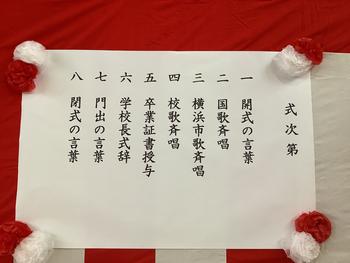 式次第
一 開式の言葉
二 国歌斉唱
三 横浜市歌斉唱
四 校歌斉唱
五 卒業証書授与
六 学校長式辞
七 門出の言葉
八 閉式の言葉